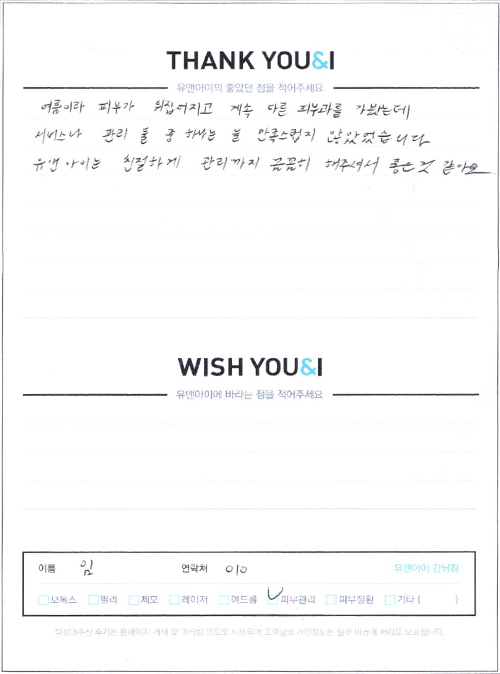 THANK YOU&I
유앤아이의 좋았던 점을 적어주세요
여름이라 피부가 뒤집어지고 계속 다른 피부과를 가봤는데
서비스나 관리 둘 중 하나는 늘 만족스럽지 않았었습니다
유앤아이는 친절하게 관리까지 꼼꼼히 해주셔서 좋은것 같아요
WISH YOU&I
유앤아이에 바라는 점을 적어주세요
이름 임 연락처 010 유앤아이 강남점
보톡스 필러 제모 레이저 여드름 피부관리 피부질환 기타 ( )
작성해주신 후기는 홈페이지 게재 및 마케팅 용도로 사용되며 고객님의 개인정보는 일부 비공개 처리로 보호됩니다.